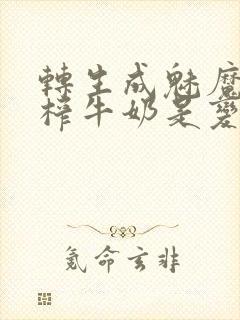 轉生成魅魔
榨牛奶是變
氪命玄非